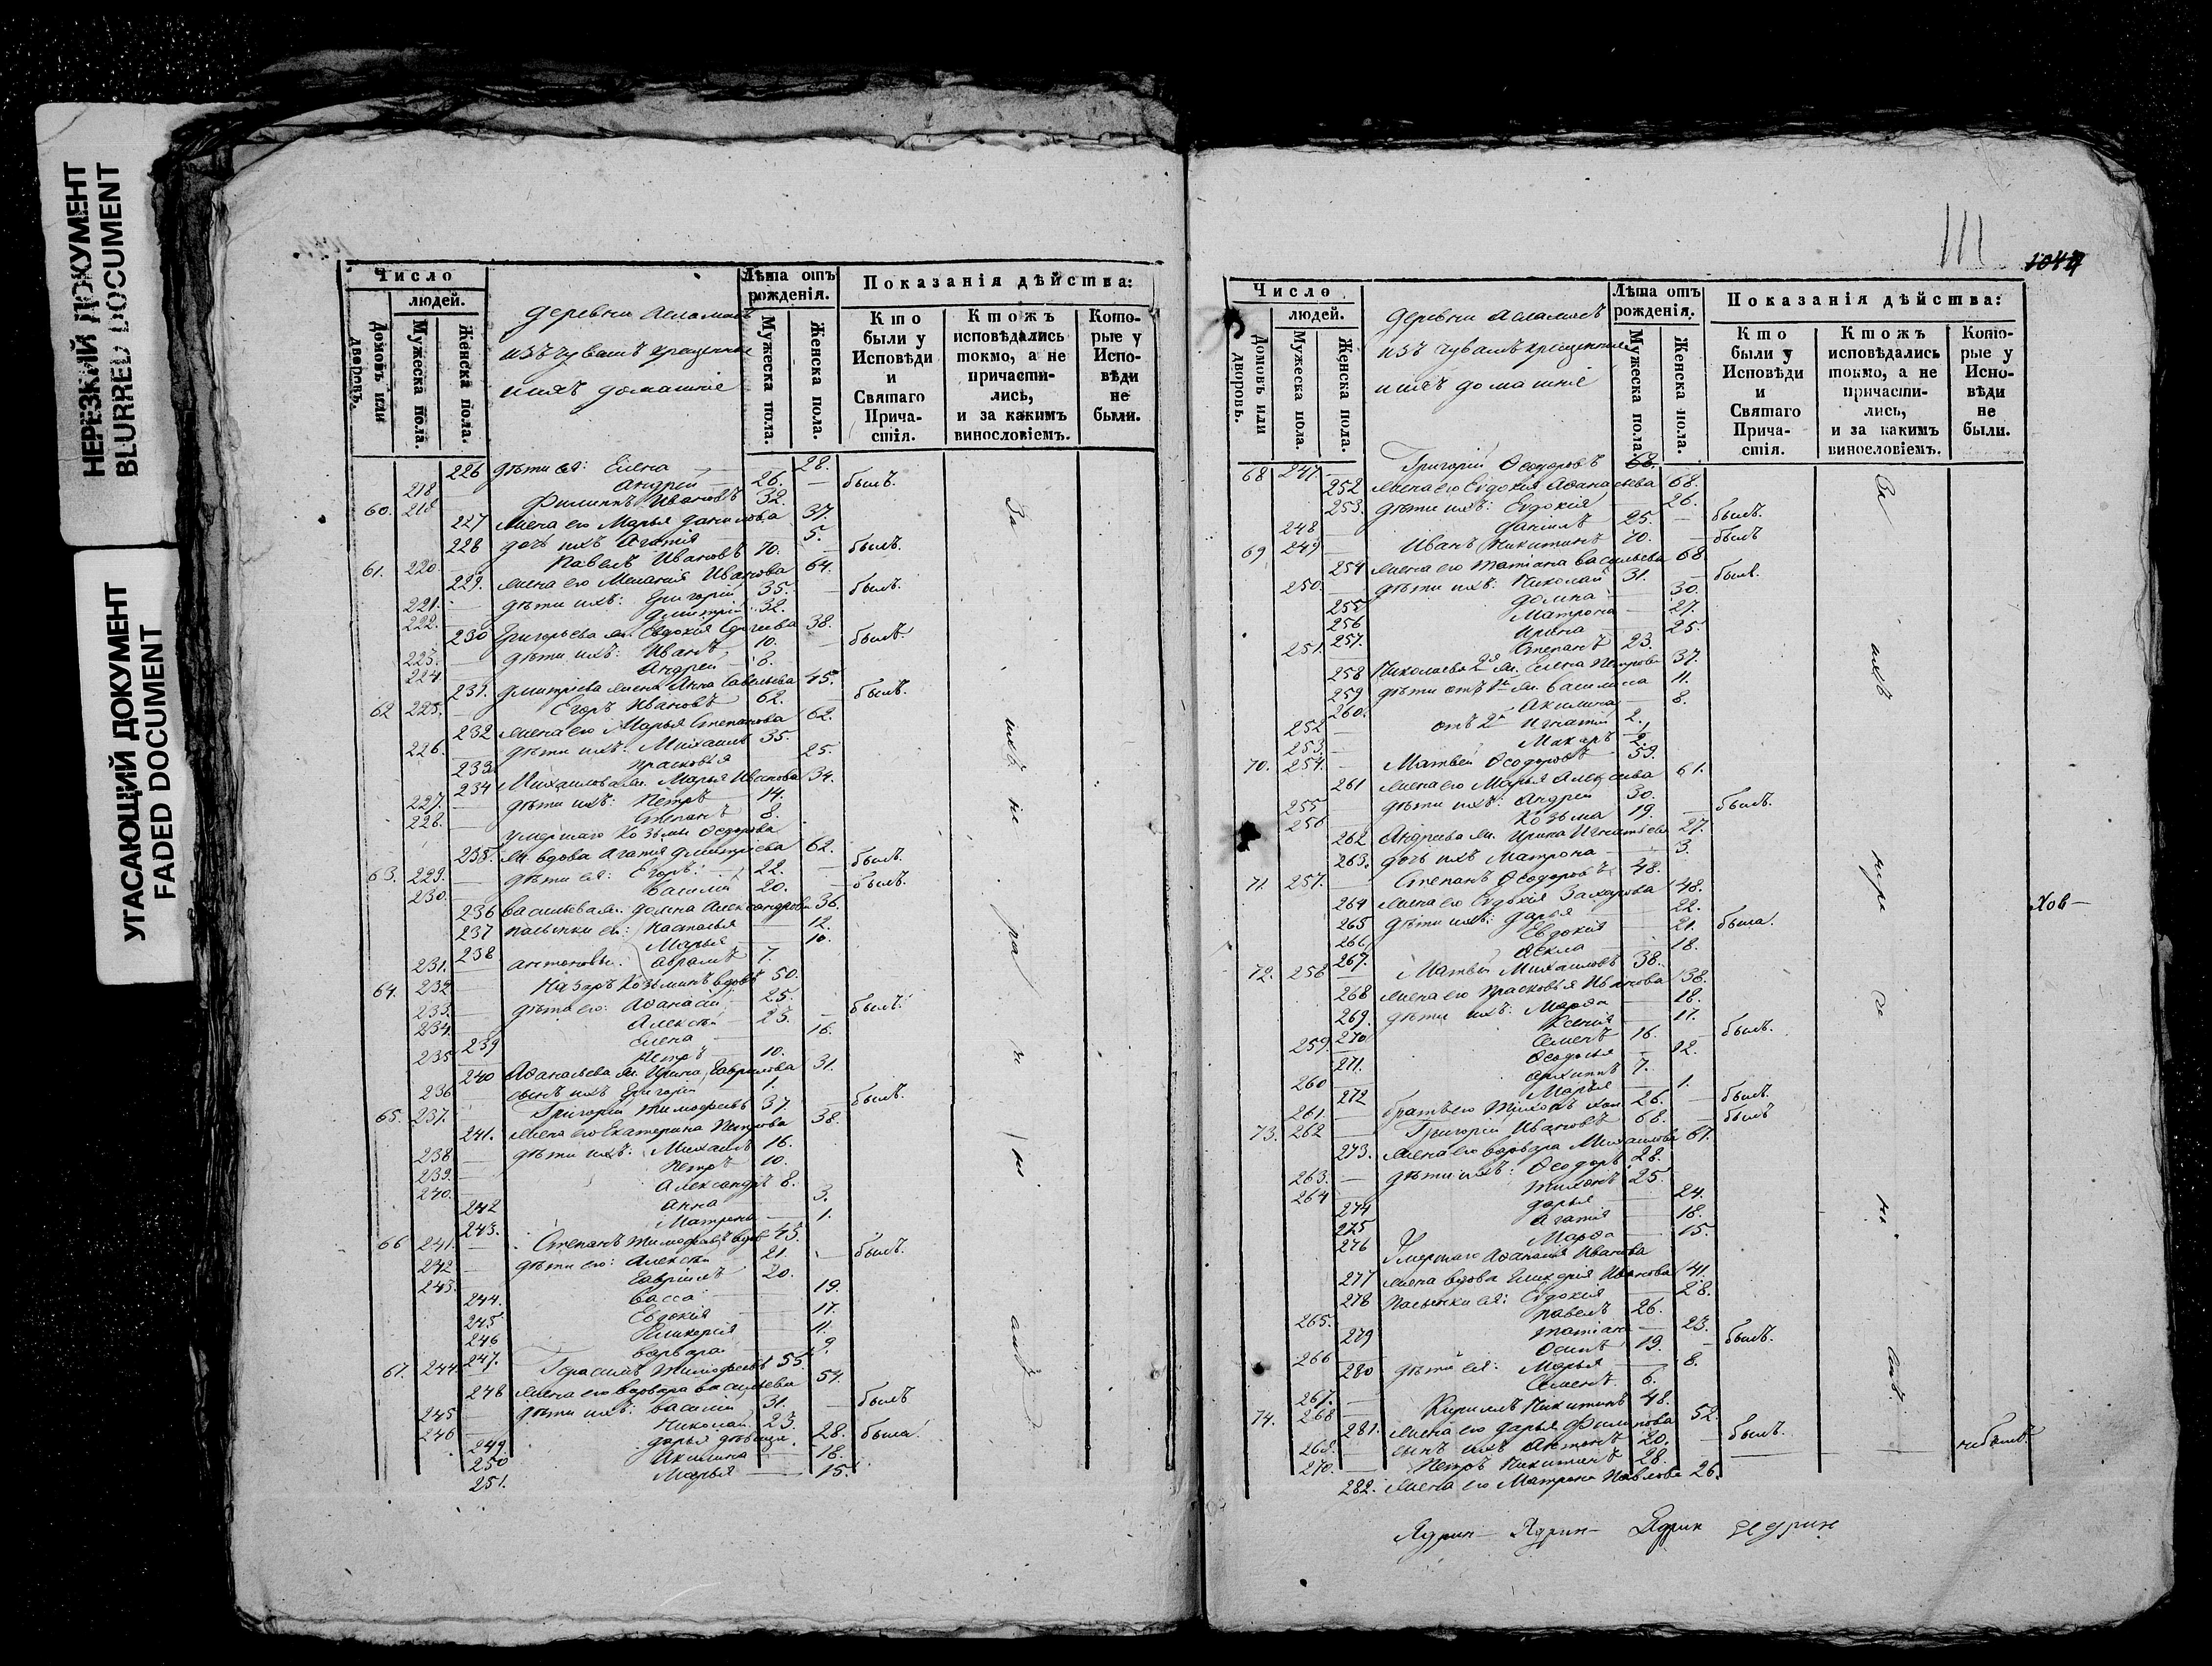 НЕРЕЗКИЙ ДОКУМЕНТ
BLURRED DOCUMENT
УГАСАЮЩИЙ ДОКУМЕНТ
FADED DOCUMENT
Число
людей.
Домовъ или дворовъ.
Мужеска пола.
Женска пола.
деревни
изъ чувашъ крещенные
и ихъ домашніе
Лѣта отъ рожденія.
Мужеска пола.
Женска пола.
Показанія дѣйства:
Кто были у Исповѣди и Святаго Причастія.
Ктожъ исповѣдались токмо, а не причастились, и за какимъ винословіемъ.
Которые у Исповѣди не были.
226 дѣти ея: Елена — 28.
218 Андрей — 26. — былъ.
60. 218 Филиппъ Ивановъ 32.
227 жена его Марья Данилова 37.
228 дочь ихъ Агаѳія — 5.
61. 220 Павелъ Ивановъ 70. — былъ.
229. жена его Меланія Иванова 64.
221. — дѣти ихъ: Григорій 35. — былъ.
222. Дмитрій 32.
230 Григорьева ж. Евдокія Сергѣева 38.
223. — дѣти ихъ: Иванъ 10. — былъ.
224. Андрей — 8.
231. Дмитріева жена Анна Савельева 45.
62 225. — Егоръ Ивановъ 62. былъ.
232 жена его Марья Степанова 62.
226. дѣти ихъ: Михаилъ 35.
233 Прасковья 25
234 Михаилова ж. Марья Иванова 34.
227. — дѣти ихъ: Петръ — 14.
228. — Степанъ 8.
умершаго Козьмы Ѳедорова
235. ж. вдова Агаѳія Дмитріева 62.
63. 229. — дѣти ея: Егоръ: — 22. — былъ.
230. — Василій 20. — былъ.
236 Васильева ж. Домна Александрова 36.
237 — 12.
238 Марья — 10.
231. Аврамъ 7.
64. 232 — Козьминъ вдовъ 50.
233. — дѣти его: Аѳанасій 25. — былъ.
234. Алексѣй — 23.
239 Елена — 16.
235 Петръ 10.
240 Аѳанасьева ж. Ирина Гаврилова 31.
236 сынъ ихъ Григорій — 1.
65. 237. — Григорій Тимофеевъ 37. — былъ.
241. жена его Екатерина Петрова 38.
238 — дѣти ихъ: Михаилъ 16.
239. — Петръ 10.
240. Александръ 8.
242 Анна 3.
243. Матрена — 1.
66 241. — Степанъ Тимофеевъ вдовъ 45.
242 — дѣти его: Алексѣй 21. — былъ.
243. Гаврилъ 20.
244. Васса — 19.
245 Евдокія — 17.
246 Гликерія — 11.
247. Варвара — 9.
67. 244 Герасимъ Тимофеевъ 55.
248 жена его Варвара Васильева 54.
245 — дѣти ихъ: Василій 31. — былъ
246 Николай 23.
249. Дарья дѣвица. 28. была.
250 Акилина — 18.
251. Марья — 15.
111
1044
Число
людей.
Домовъ или дворовъ.
Мужеска пола.
Женска пола.
деревни
изъ чувашъ крещенные
и ихъ домашніе
Лѣта отъ рожденія.
Мужеска пола.
Женска пола.
Показанія дѣйства:
Кто были у Исповѣди и Святаго Причастія.
Ктожъ исповѣдались токмо, а не причастились, и за какимъ винословіемъ.
Которые у Исповѣди не были.
68 247. — Григорій Ѳеодоровъ 68.
252 жена его Евдокія Аѳанасьева 68.
253. дѣти ихъ: Евдокія — 26.
248 Даніилъ 25. — былъ.
69 249 — Иванъ Никитинъ 70. — былъ
254 жена его Татіана Васильева 68
250. — дѣти ихъ: Николай 31. — былъ.
255 Домна — 30.
256 Матрона — 27.
257. Ирина — 25.
251. Степанъ 23.
258 Николаева 2я ж. Елена Петрова 37.
259 дѣти отъ 1й ж. Василиса 11.
260. Акилина — 8.
252 — отъ 2й Игнатій 2.
253. — Макаръ 2.
70. 254. — Матвей Ѳеодоровъ 59.
261 жена его Марья Алексеева 61.
255 дѣти ихъ: Андрей 30.
256 Козьма 19. — былъ.
262 Андреева ж. Ирина Игнатьева 27.
263. дочь ихъ Матрона — 3.
71. 257. — Степанъ Ѳеодоровъ 48.
264 жена его Евдокія Захарова 48.
265 дѣти ихъ: Дарья — 22.
266 Евдокія — 21. была.
267. Ѳекла — 18.
72. 258 — Матвей Михаиловъ 38.
268 жена его Прасковья Иванова 38.
269. дѣти ихъ: Марѳа — 18.
270 Ксенія — 17.
259. Семенъ 16. — былъ.
271. Ѳеодосья — 12.
260 Архиппъ 7.
272 Марья — 1.
261. — братъ его Тихонъ хол. 26. — былъ.
73. 262 — Григорій Ивановъ 68. — былъ
273. жена его Варвара Михаилова 67.
263. — дѣти ихъ: Ѳеодоръ 28.
264 — Тихонъ 25.
274 Дарья — 24.
275 Агаѳія — 18.
276 Марѳа — 15.
Умершаго Аѳанасія Иванова
277 жена вдова Гликерія Иванова 41.
278 Пасынки ея: Евдокія — 28.
265. Павелъ 26.
279 Татіана — 23.
266 Осипъ 19. — былъ.
280 дѣти ея: Марья — 8.
267. Семенъ 6.
74. 268 — Кириллъ Никитинъ 48.
281. жена его Дарья Филипова 52.
269. сынъ ихъ Антонъ 20. — былъ.
270. — Петръ Никитинъ 28. — — небылъ.
282. жена его Матрона Павлова 26.
Ядрин— Ядрин— Ядрин Ядрин